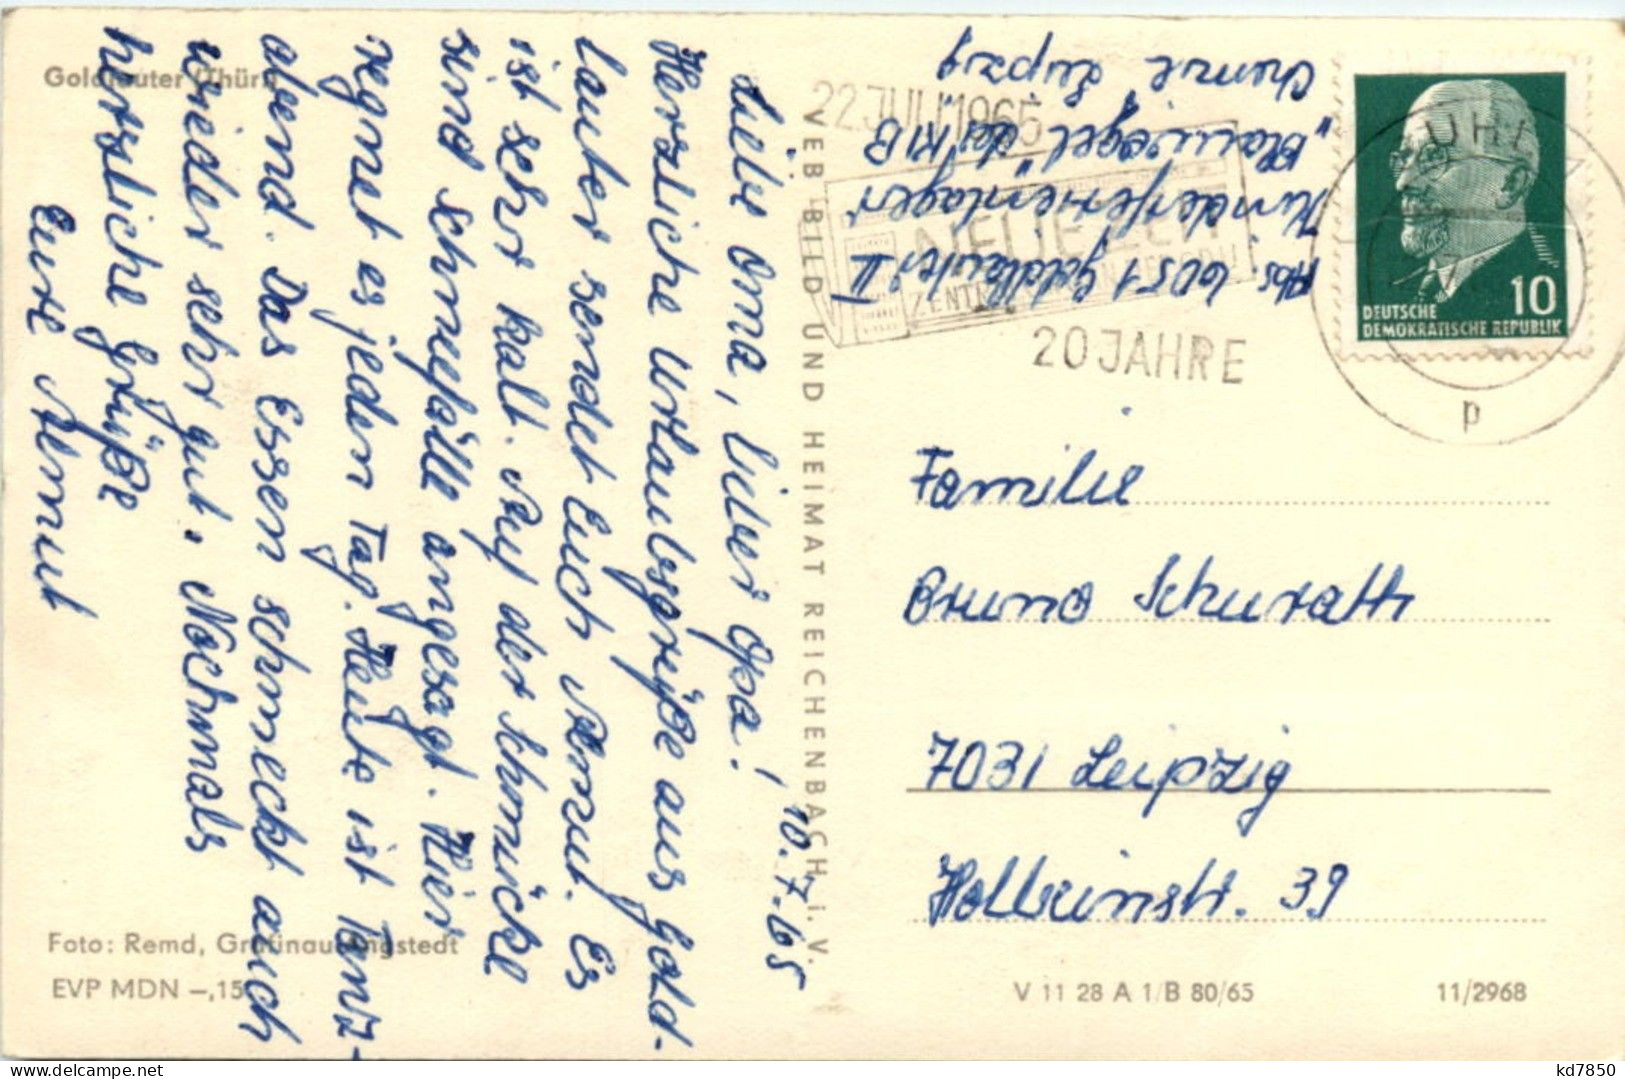 Goldlauter (Thür.)
10.7.65
Liebe Oma, lieber Opa!
Herzliche Urlaubsgrüße aus Gold-
lauter sendet Euch Almut. Es
ist sehr kalt. Auf der Schmücke
sind Schneefälle angesagt. Hier
regnet es jeden Tag. Heute ist Tanz-
abend. Das Essen schmeckt auch
wieder sehr gut. Nochmals
herzliche Grüße
Eure Almut
Foto: Remd, Gräfinau-Angstedt
EVP MDN –,15
VEB BILD UND HEIMAT REICHENBACH i. V.
Abs. 6051 Goldlauter II
Kinderferienlager
"Blauvogel" des KIB
Chemie Leipzig
22 JULI 1965
NEUE ZEIT
20 JAHRE
SUHL 1
p
10
DEUTSCHE
DEMOKRATISCHE REPUBLIK
Familie
Bruno Schurath
7031 Leipzig
Holbeinstr. 39
V 11 28 A 1/B 80/65
11/2968
kd7850